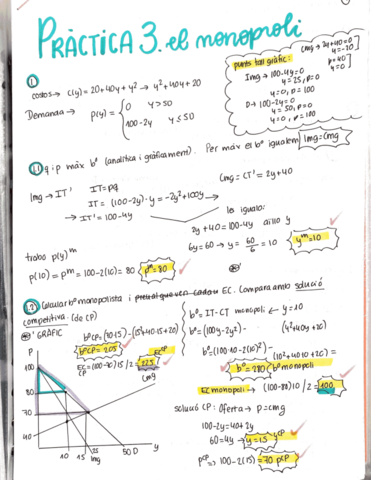 PRÀCTICA 3. el monopoli
punts tall gràfic:
Img → 100-4y=0
y=25, p=0
y=0, p=100
D → 100-2y=0
y=50, p=0
y=0, p=100
Cmg → 2y+40=0
y=-20
p=40
y=0
①
costos → C(y) = 20+40y+y² → y²+40y+20
Demanda → p(y) = { 0 y>50
100-2y y≤50
1.1 q i p màx bº (analítica i gràficament). Per màx el bº igualem Img=Cmg
Img → IT' IT=pq
IT = (100-2y)·y = -2y²+100y
→ IT' = 100-4y
Cmg = CT' = 2y+40
les igualo:
2y+40=100-4y aïllo y
6y=60 → y = 60/6 = 10 yᵐ=10
trobo p(y)ᵐ
p(10) = pᵐ = 100-2(10) = 80 pᵐ=80
1.2 Calcular bº monopolista i EC. Comparar amb solució
competitiva. (de CP)
GRÀFIC
bºCP = (70·15)-(15²+40·15+20)
bºCP = 205
EC CP = (100-70)15/2 = 225
ECᶜᵖ
bº = IT-CT monopoli ← y=10
bº = (100y-2y²) - (y²+40y+20)
bº = (100·10-2(10)²) - (10²+40·10+20) =
bº=280 bº monopoli
EC monopoli → (100-80)10/2 = 100
solució CP: Oferta → p=cmg
100-2y=40+2y
60=4y → y=15 yᶜᵖ
pᶜᵖ → 100-2(15) = 70 pᶜᵖ
P
100
80
70
40
Cmg
10 15 25 50 D y
Img